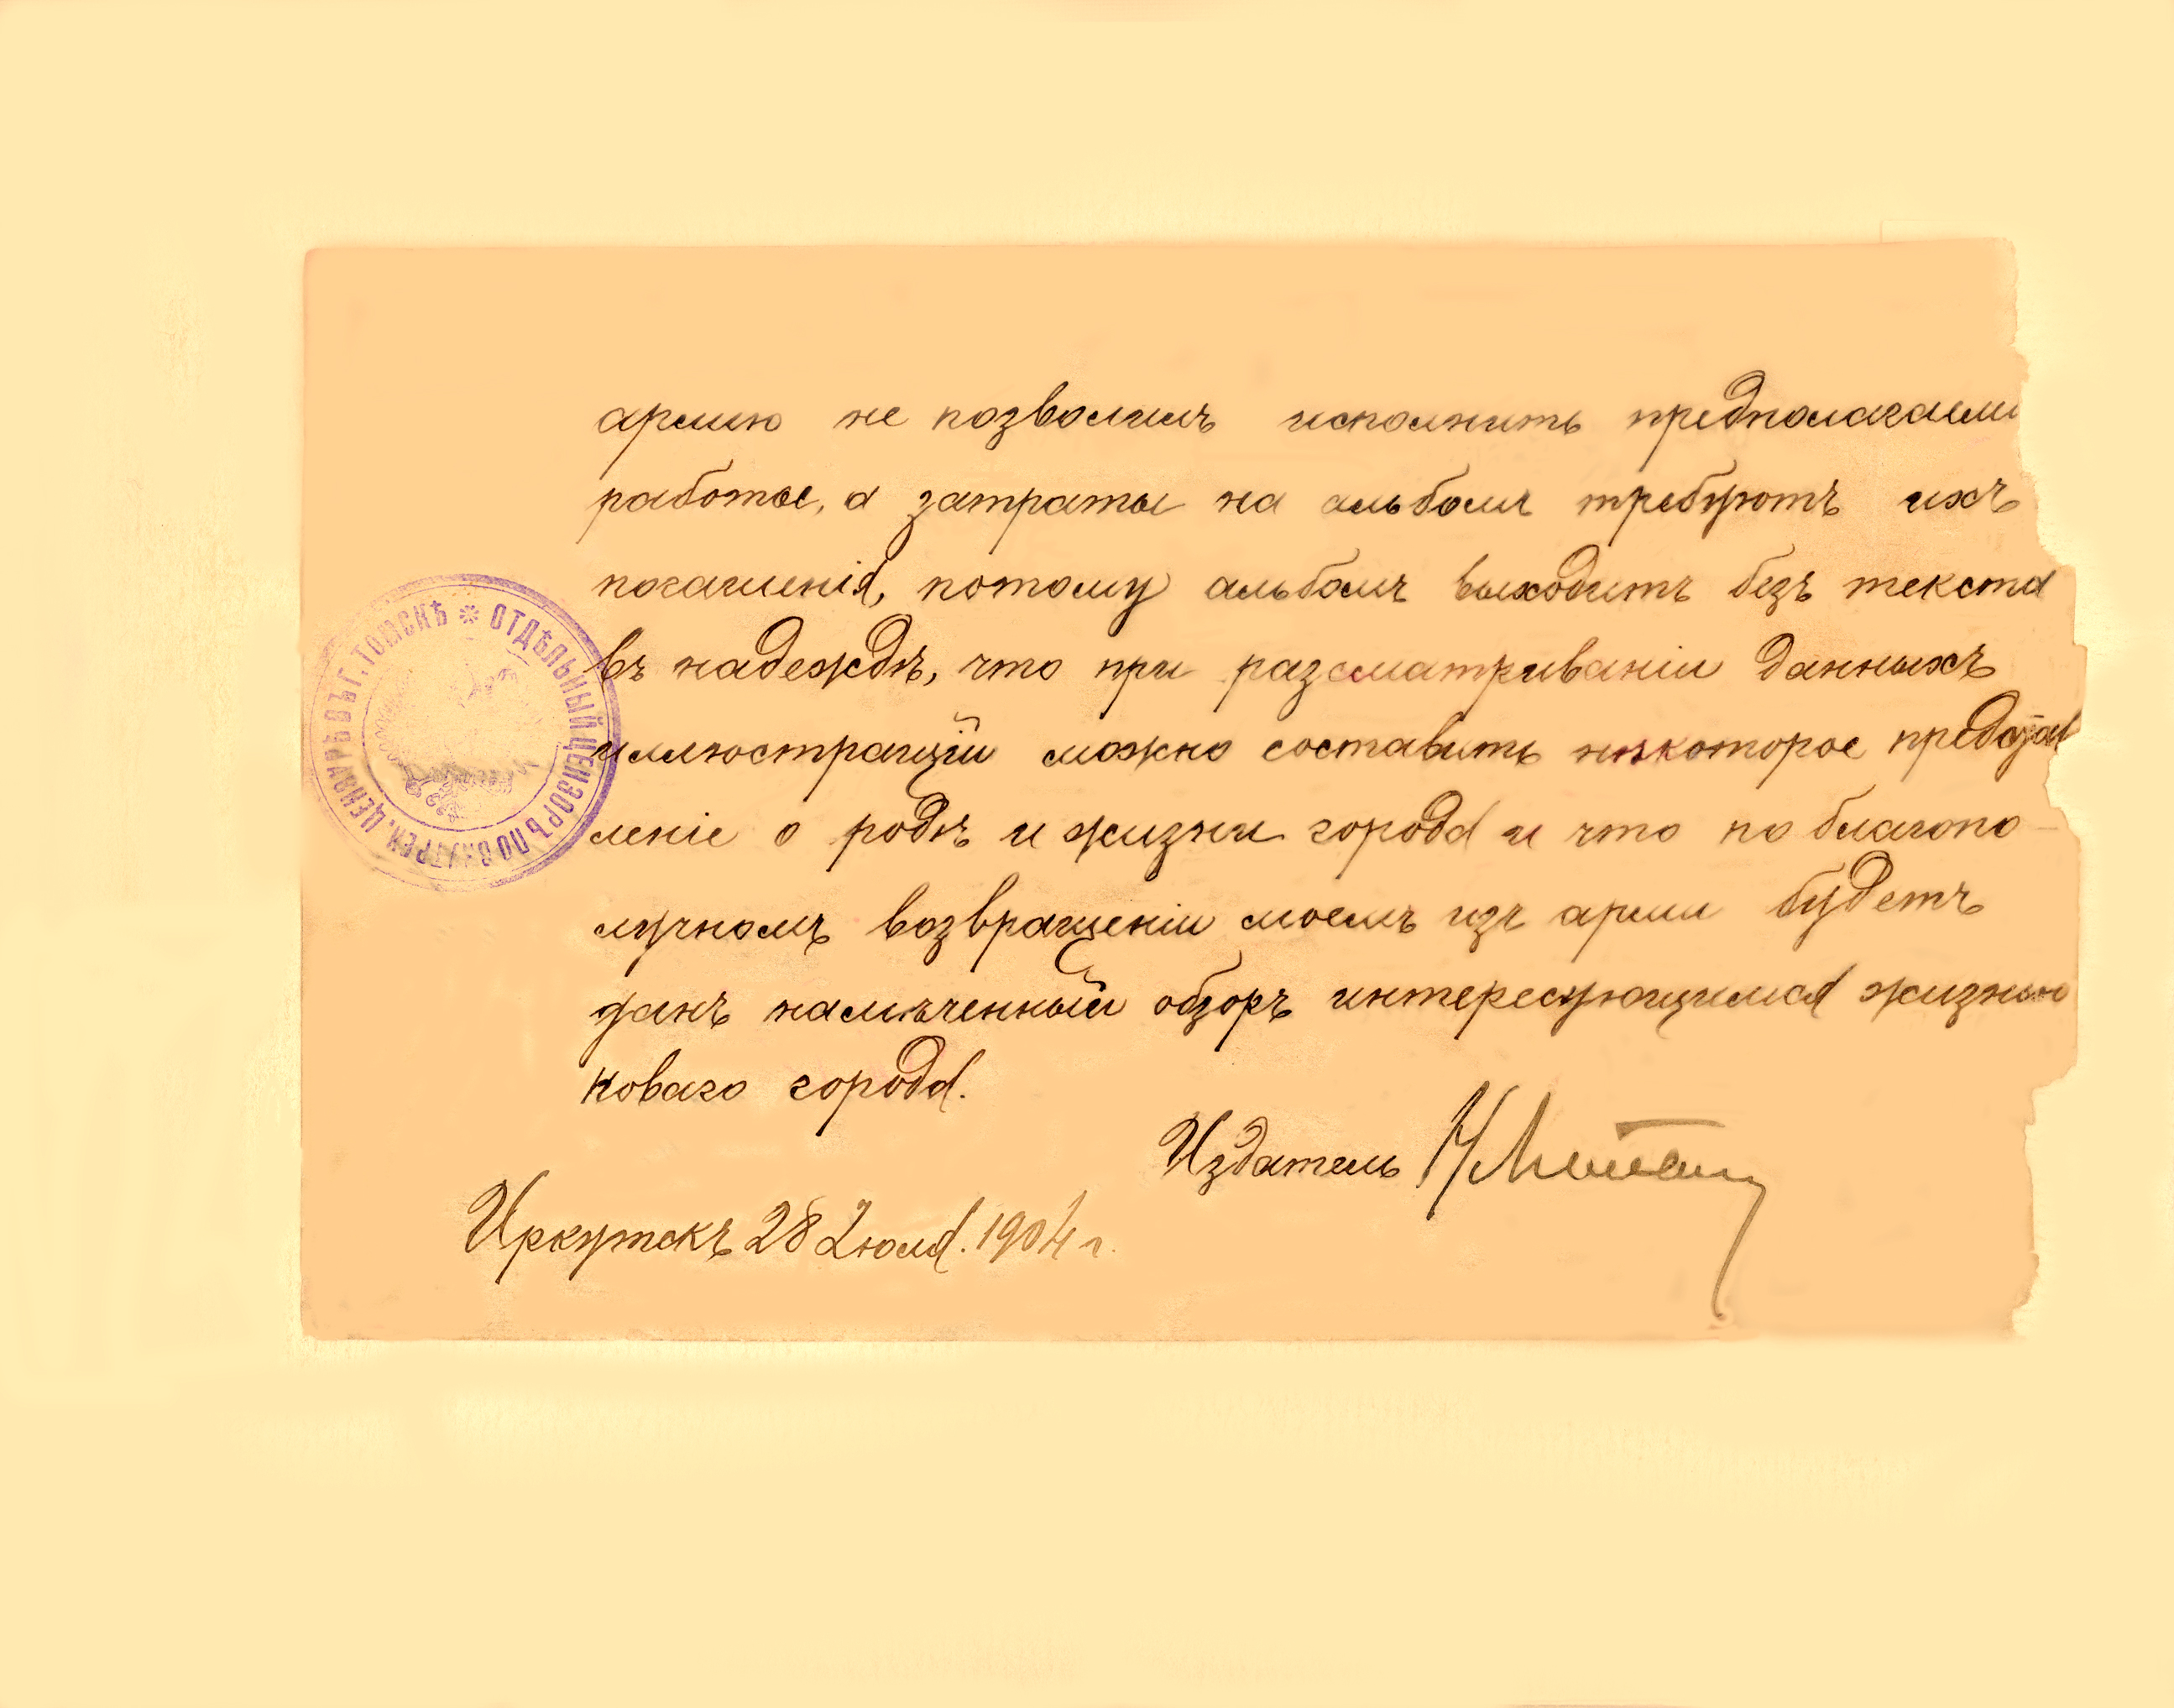 армію не позволитъ исполнить предполагаем
работы, а затраты на альбомъ требуютъ ихъ
погашенія, потому альбомъ выходитъ безъ текста
въ надеждѣ, что при разсматриваніи данныхъ
иллюстрацій можно составить нѣкоторое представ
леніе о родѣ и жизни города и что по благопо-
лучномъ возвращеніи моемъ изъ арміи будетъ
данъ намѣченный обзоръ интересующимся жизнью
новаго города.
Издатель
Иркутскъ 28 Іюля. 1904 г.
ОТДѢЛЬНЫЙ ЦЕНЗОРЪ ПО ВНУТРЕН. ЦЕНЗУРѢ ВЪ Г. ТОМСКѢ